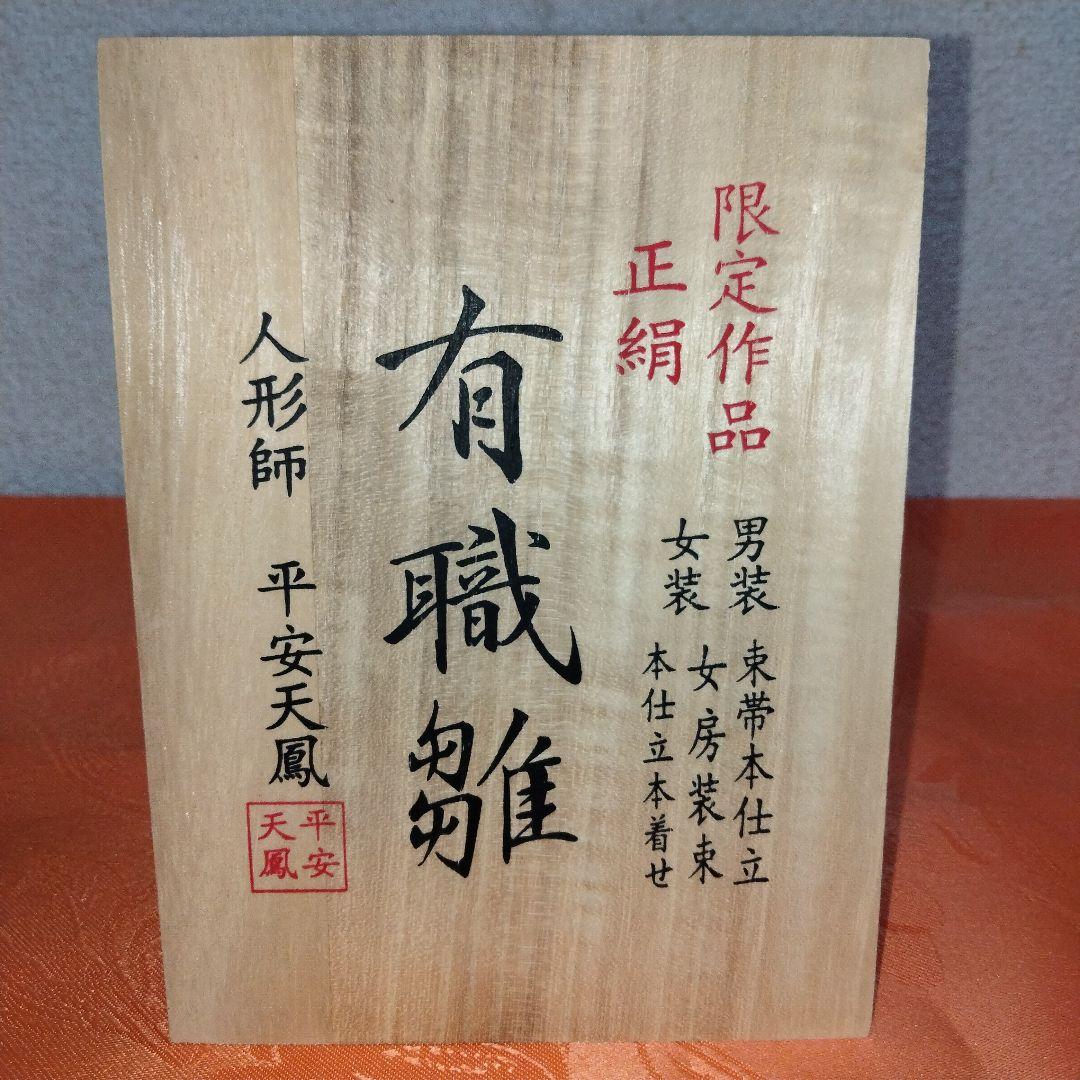 限定作品
正絹
男装 束帯本仕立
女装 女房装束
本仕立本着せ
有職雛
人形師 平安天鳳
平安
天鳳